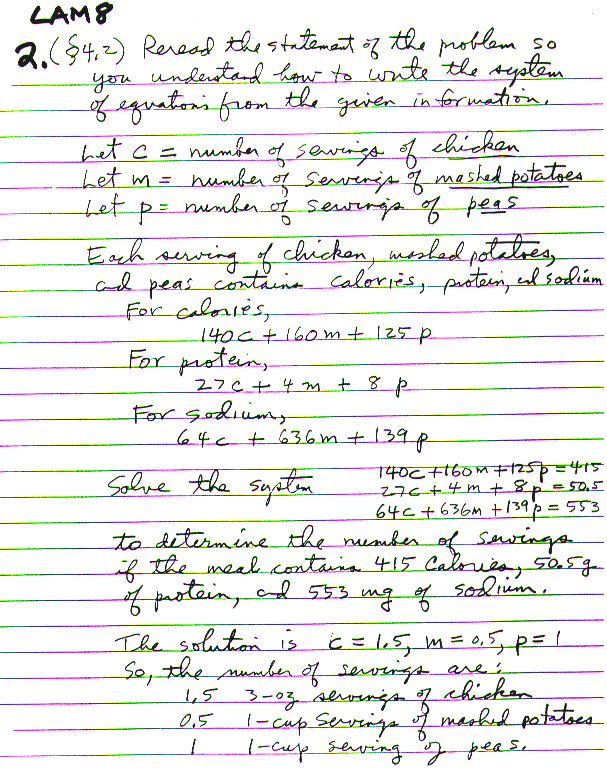 LAM8
2. (§4.2) Reread the statement of the problem so
you understand how to write the system
of equations from the given information.
Let c = number of servings of chicken
Let m = number of servings of mashed potatoes
Let p = number of servings of peas
Each serving of chicken, mashed potatoes,
and peas contains calories, protein, and sodium
For calories,
140c + 160m + 125p
For protein,
27c + 4m + 8p
For sodium,
64c + 636m + 139p
Solve the system 140c + 160m + 125p = 415
27c + 4m + 8p = 50.5
64c + 636m + 139p = 553
to determine the number of servings
if the meal contains 415 Calories, 50.5g
of protein, and 553 mg of sodium.
The solution is c = 1.5, m = 0.5, p = 1
So, the number of servings are:
1.5 3-oz servings of chicken
0.5 1-cup servings of mashed potatoes
1 1-cup serving of peas.